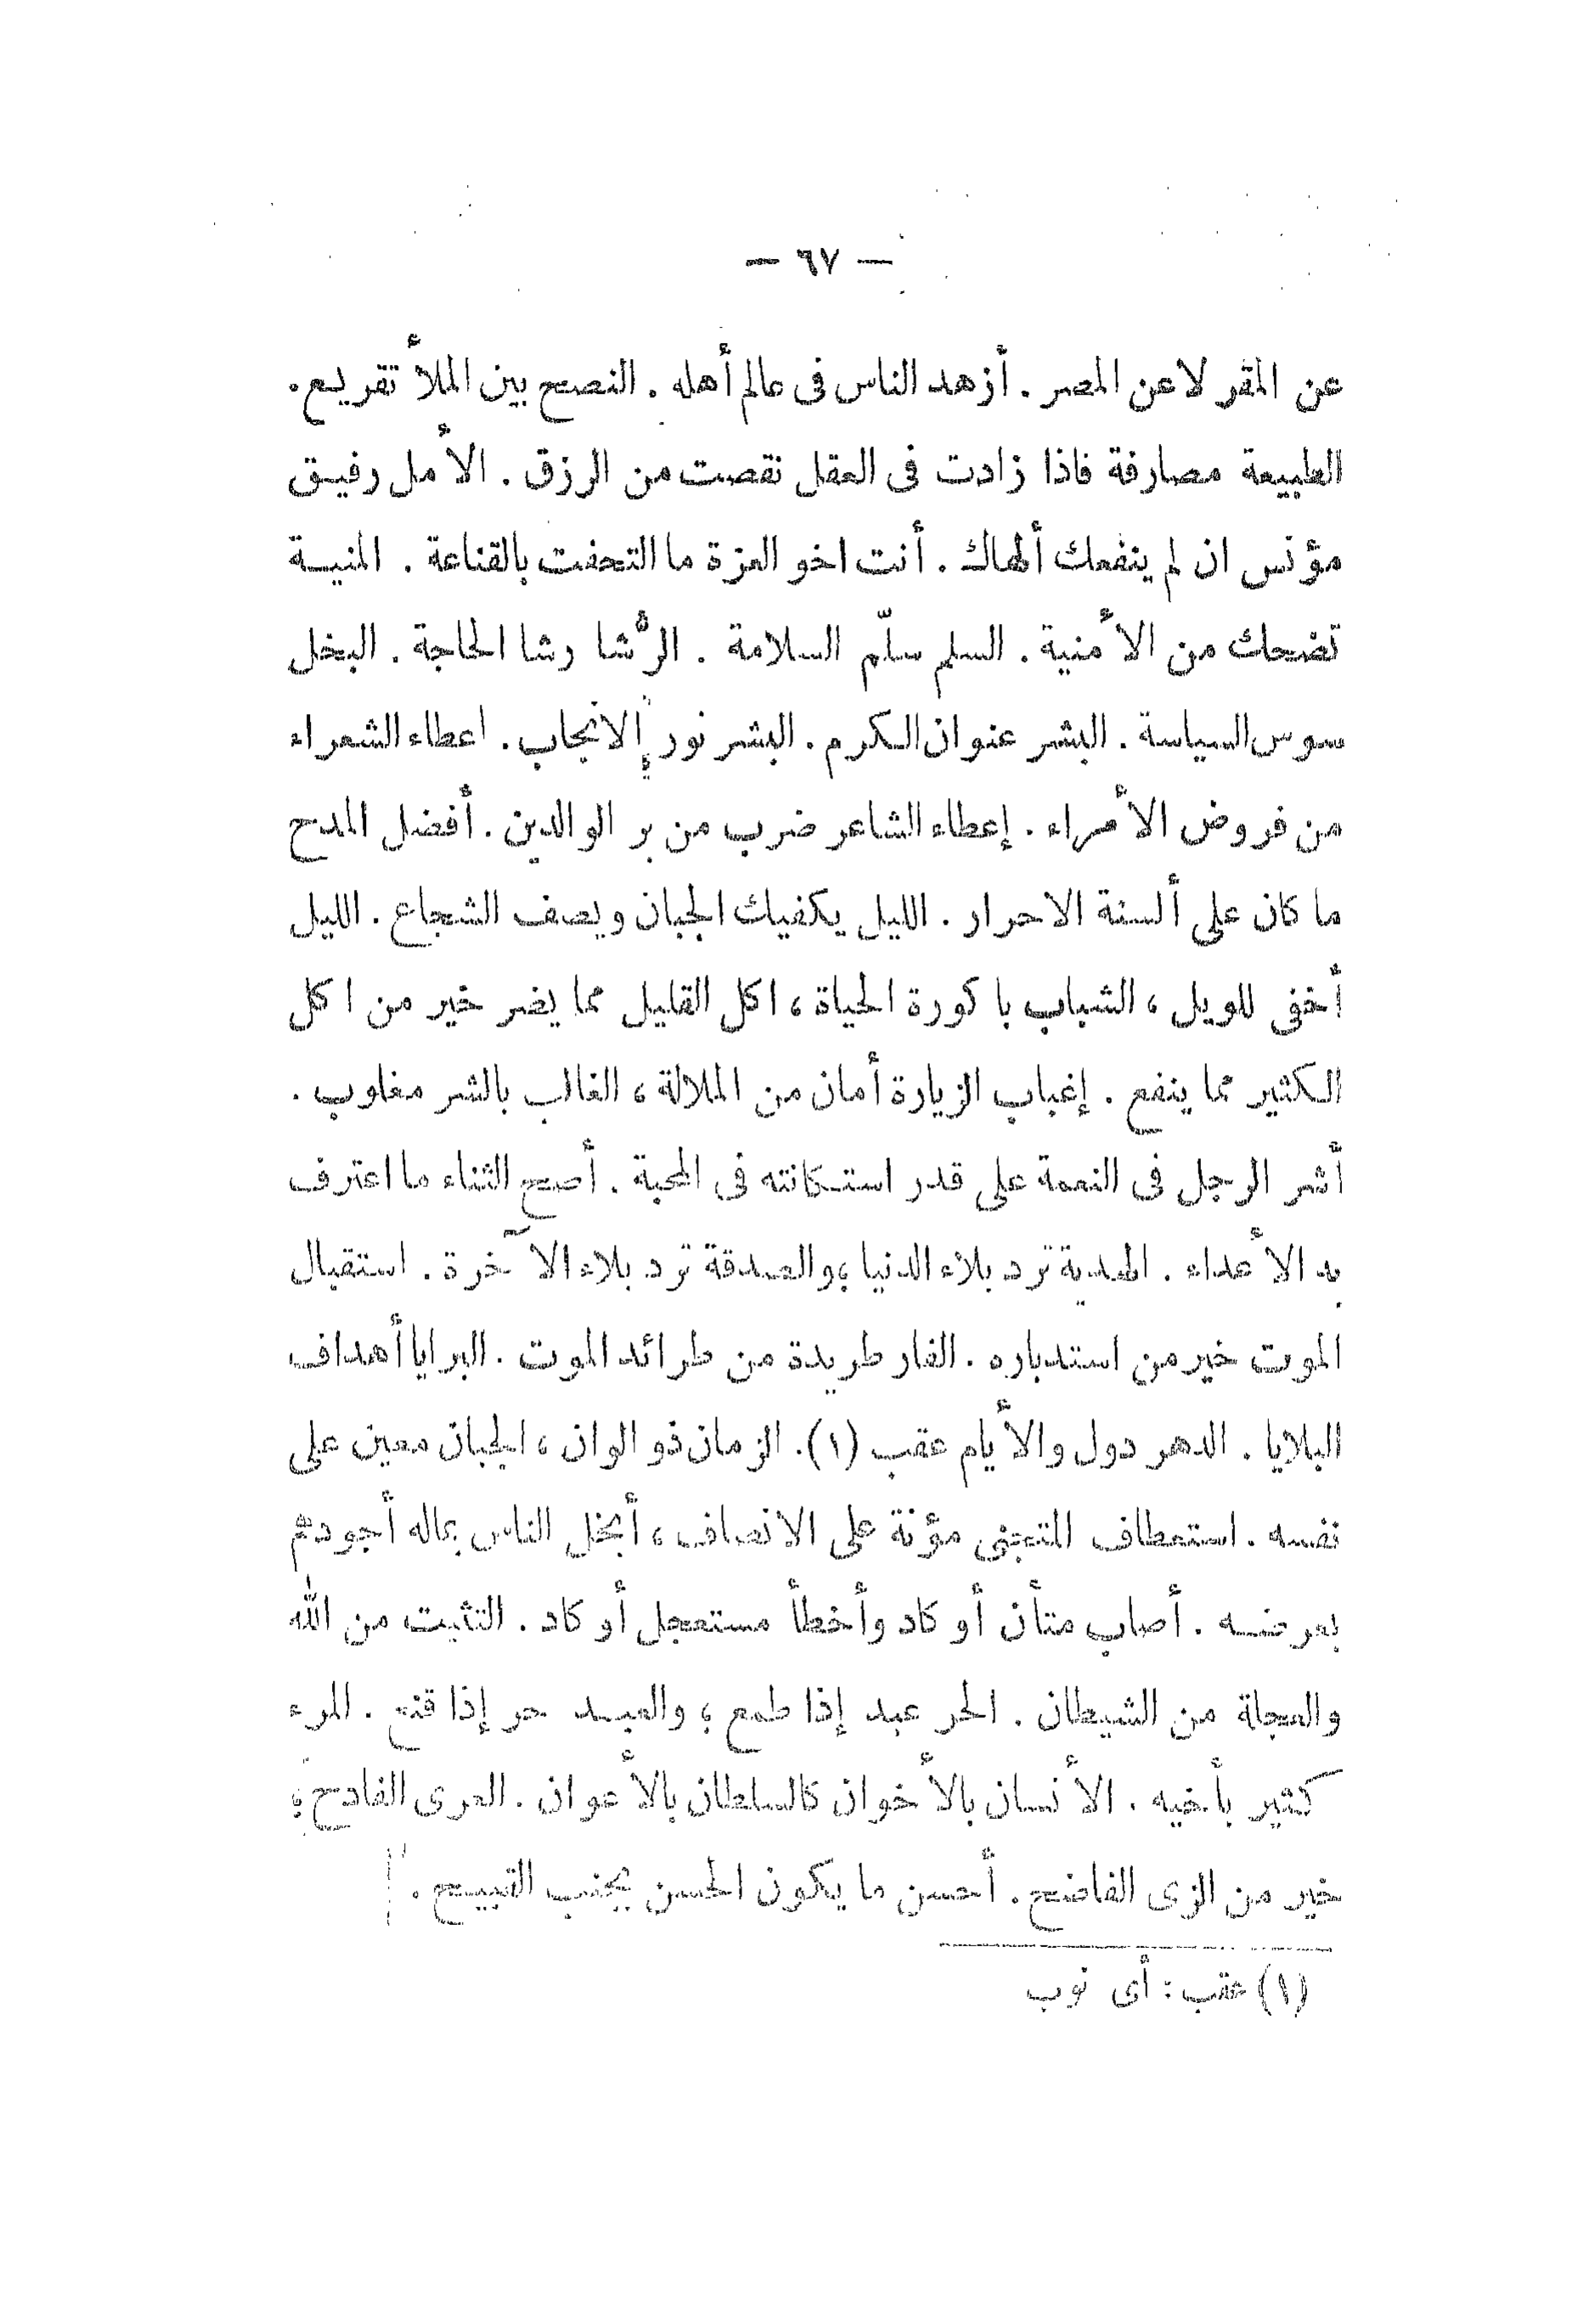 — ٦٧ —
عن المقر لا عن المصر . أزهد الناس فى عالم أهله . النصح بين الملأ تقريع .
الطبيعة مصارفة فاذا زادت فى العقل نقصت من الرزق . الأمل رفيق
مؤنس ان لم ينفعك ألهاك . أنت اخو العزة ما التحفت بالقناعة . المنية
تضحك من الأمنية . السلم سلّم السلامة . الرُّشا رشا الحاجة . البخل
سوس السياسة . البشر عنوان الكرم . البشر نور الانجاب . اعطاء الشعراء
من فروض الأمراء . إعطاء الشاعر ضرب من بر الوالدين . أفضل المدح
ما كان على ألسنة الاحرار . الليل يكفيك الجبان ويصف الشجاع . الليل
أخفى للويل ، الشباب باكورة الحياة ، اكل القليل مما يضر خير من اكل
الكثير مما ينفع . إغباب الزيارة أمان من الملالة ، الغالب بالشر مغلوب .
أشر الرجل فى النعمة على قدر استكانته فى المحبة . أصح الثناء ما اعترف
به الأعداء . الهدية ترد بلاء الدنيا ، والصدقة ترد بلاء الآخرة . استقبال
الموت خير من استدباره . الفار طريدة من طرائد الموت . البرايا أهداف
البلايا . الدهر دول والأيام عقب (١) . الزمان ذو الوان ، الجبان معين على
نفسه . استعطاف المتجنى مؤنة على الانصاف ، أبخل الناس بماله أجودهم
بعرضه . أصاب متأن أو كاد وأخطأ مستعجل أو كاد . التثبت من الله
والعجلة من الشيطان . الحر عبد إذا طمع ، والعبد حر إذا قنع . المرء
كثير بأخيه . الأنسان بالأخوان كالسلطان بالأعوان . العرى الفادح ،
خير من الزى الفاضح . أحسن ما يكون الحسن بجنب القبيح .
(١) عقب : أى نوب